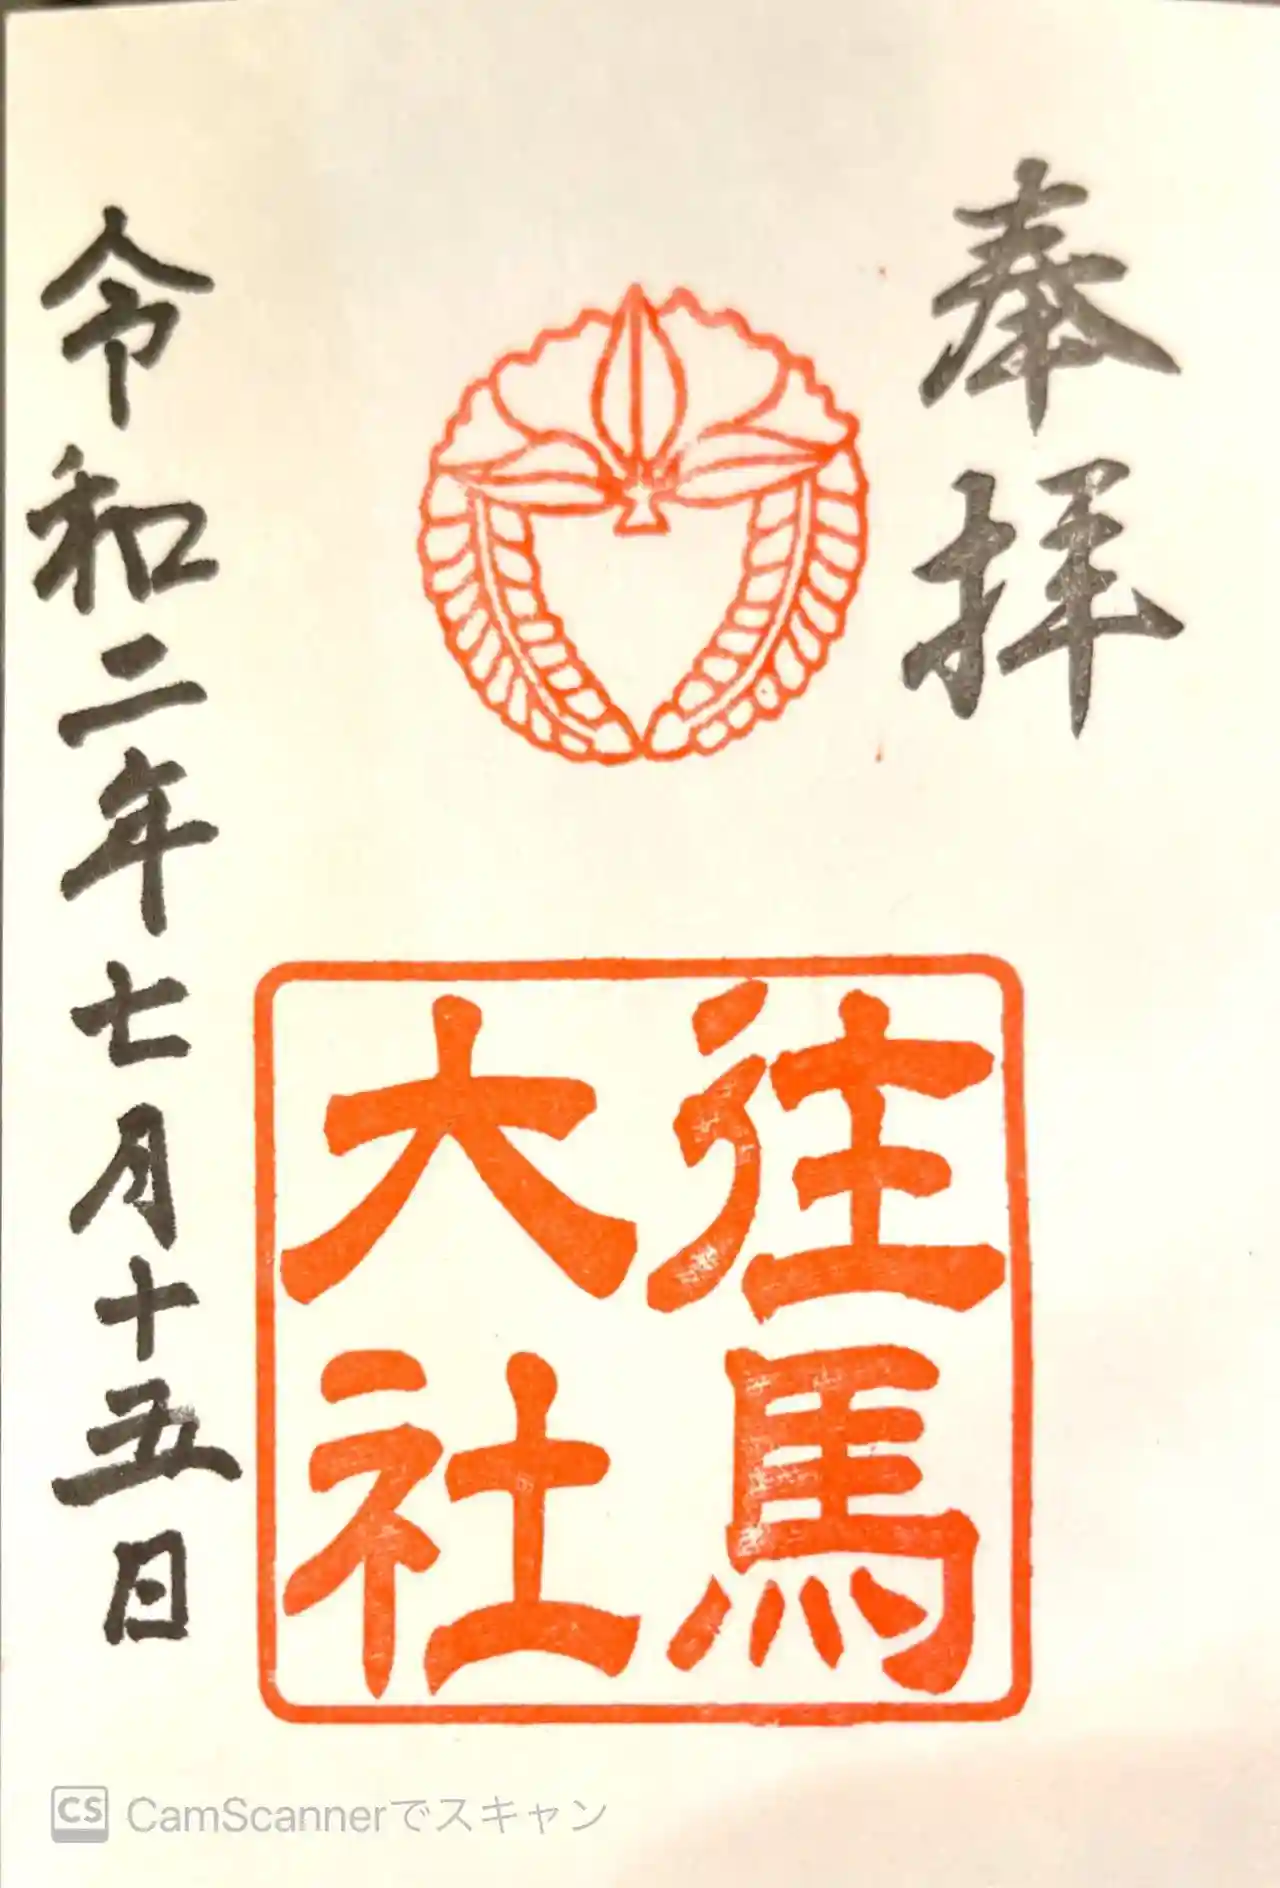 奉拝
往馬
大社
令和二年七月十五日
CamScannerでスキャン